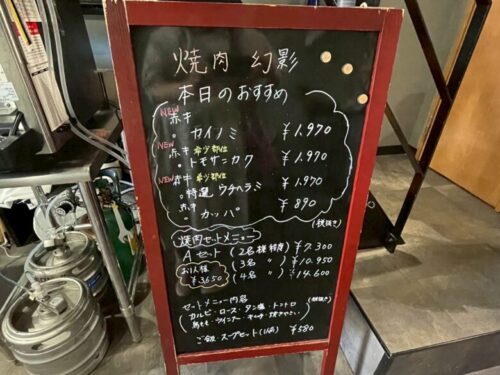 焼肉 幻影
本日のおすすめ
NEW
赤牛
・カイノミ ¥1.970
NEW
赤牛 希少部位
・トモサンカク ¥1.970
NEW
赤牛 希少部位
・特選 ウチハラミ ¥1.970
赤牛
カッパ ¥890
(税抜き)
焼肉セットメニュー
Aセット (2名様程度) ¥7.300
お1人様 (3名 〃) ¥10.950
¥3650 (4名 〃) ¥14.600
セットメニュー内容 (税抜き)
カルビ・ロース・タン塩・トントロ
鶏もも・ウインナー・キムチ・焼きやさい
ご飯・スープセット(1人前) ¥580